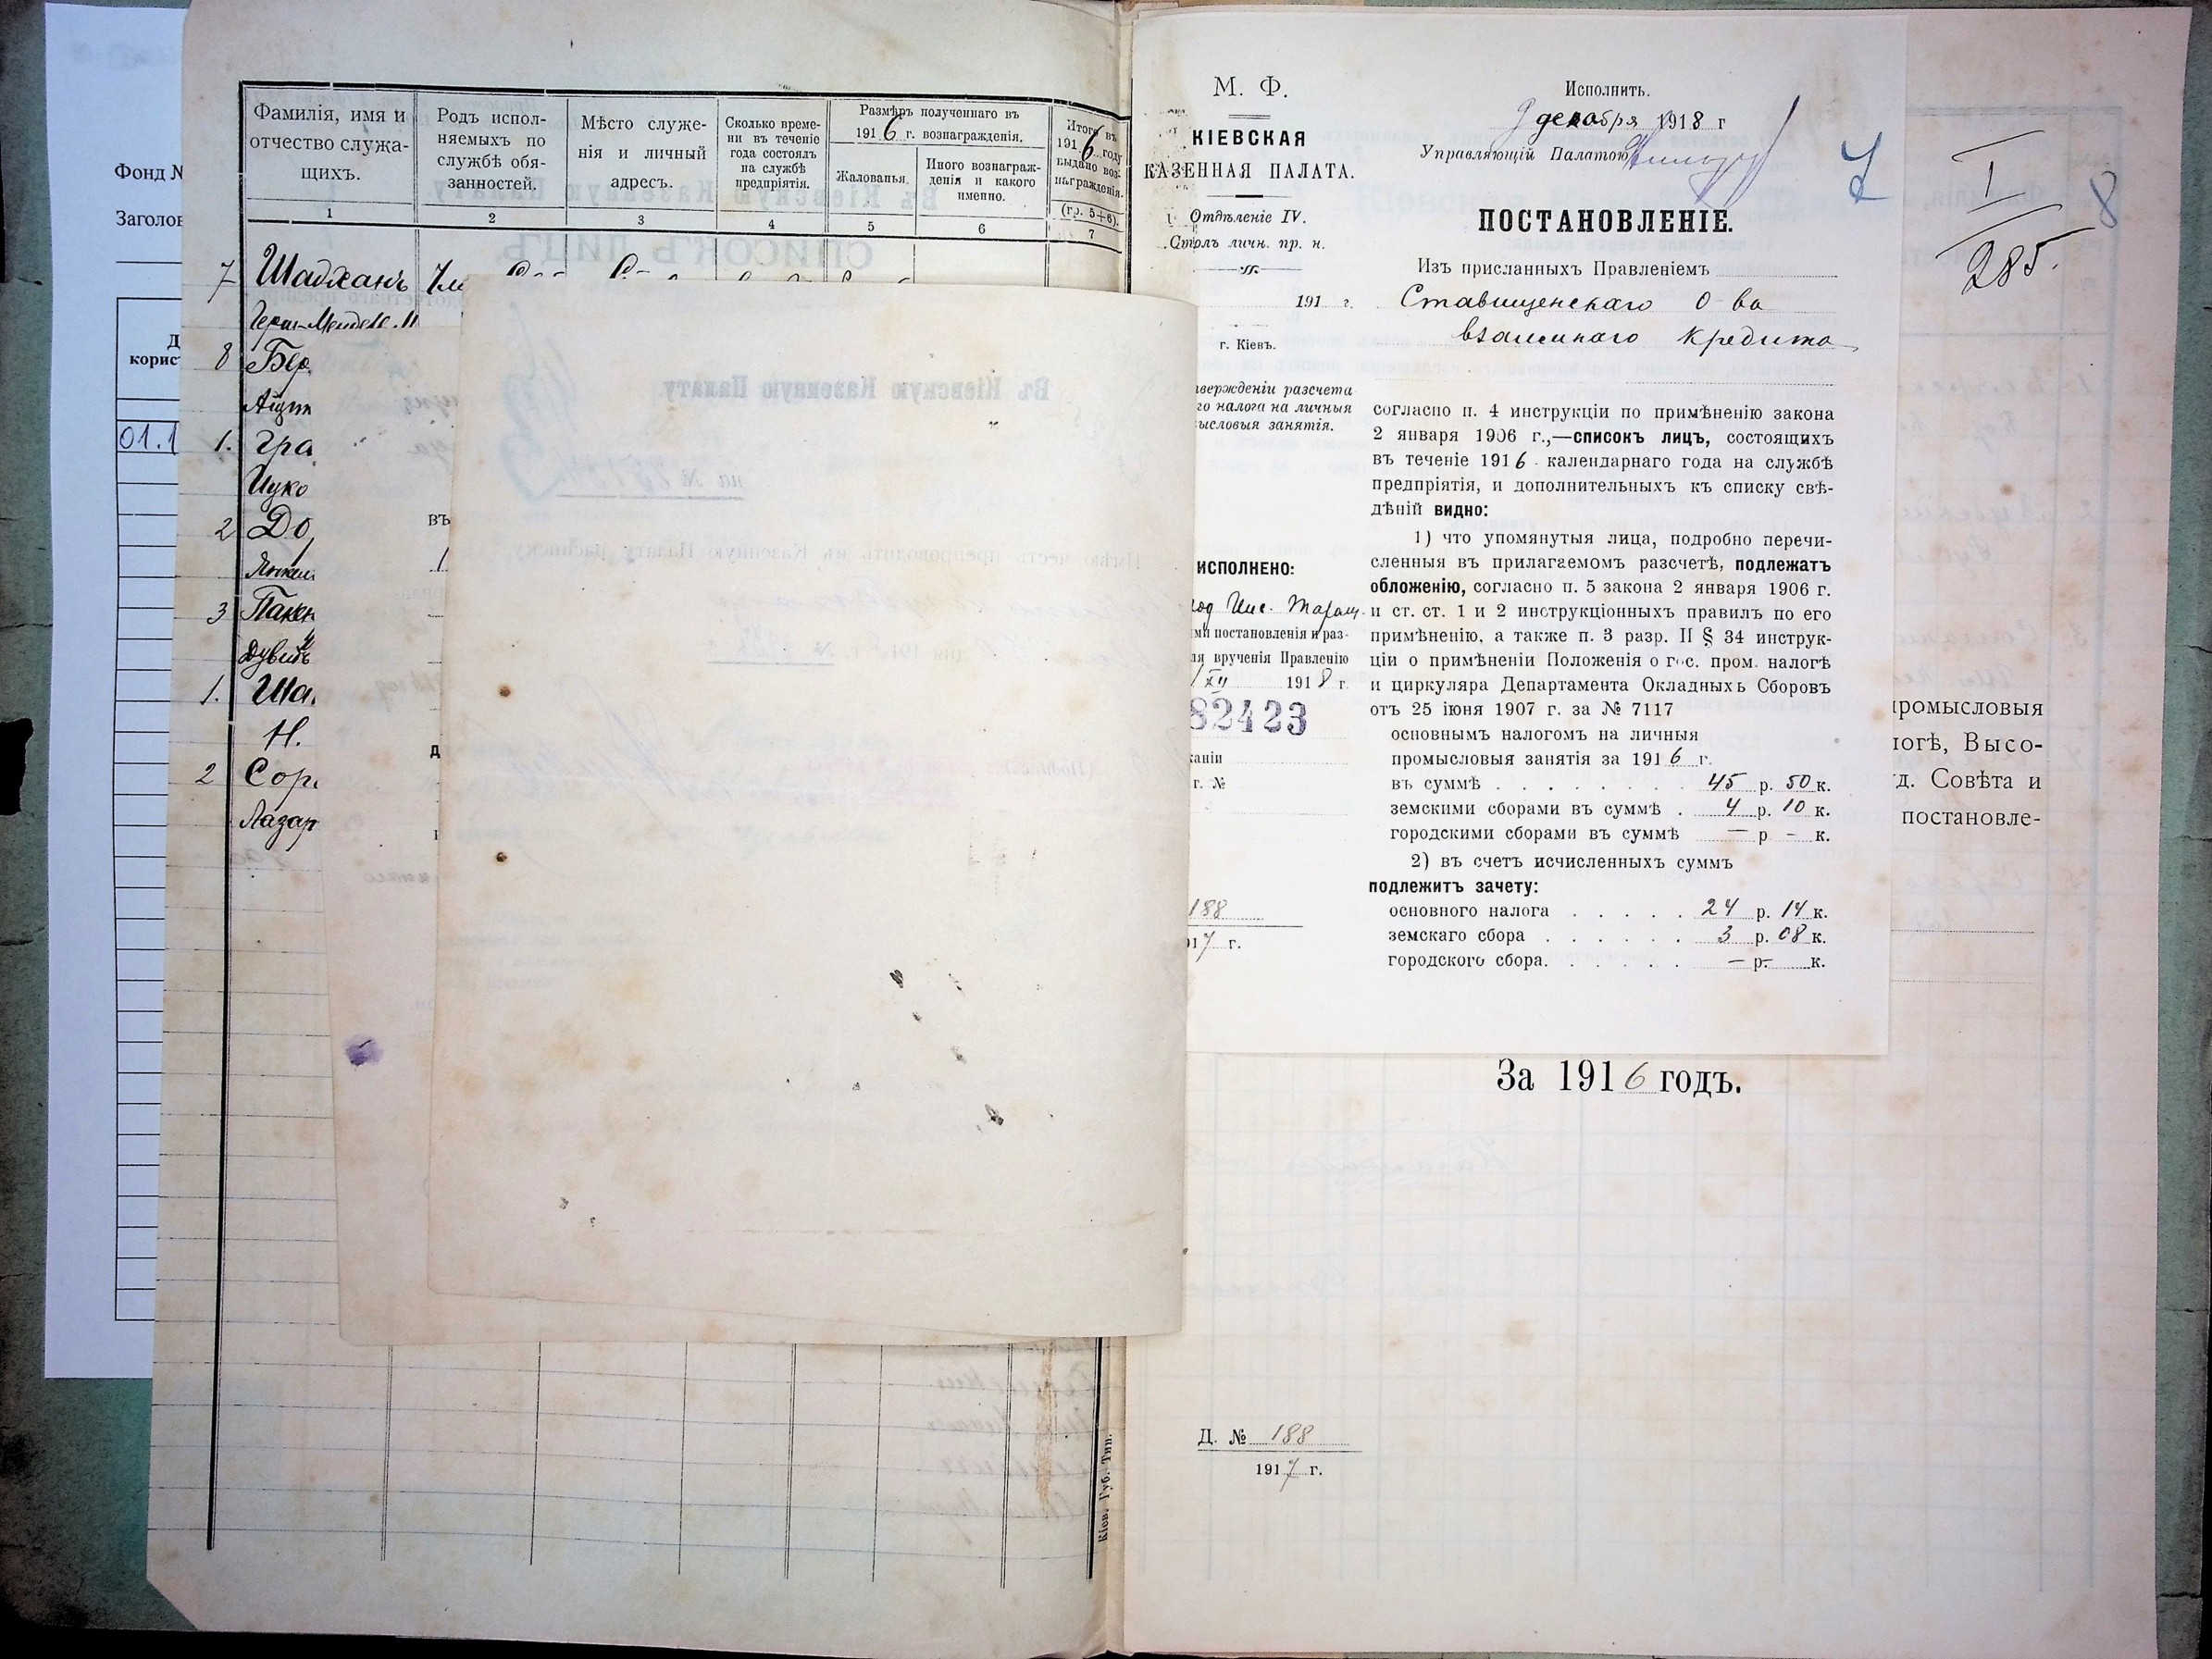 Фонд №
Заголов
Д
корист
01.1
Фамилія, имя и
отчество служа-
щихъ.
Родъ испол-
няемыхъ по
службѣ обя-
занностей.
Мѣсто служе-
нія и личный
адресъ.
Сколько време-
ни въ теченіе
года состоялъ
на службѣ
предпріятія.
Размѣръ полученнаго въ
1916 г. вознагражденія.
Жалованья.
Иного вознаграж-
денія и какого
именно.
Итого въ
1916 году
выдано воз-
награжденія.
(гр. 5+6).
1 2 3 4 5 6 7
7 Шаджанъ
8 Бер
1. Гра
Ицко
2 До
3 Пакен
Дувидъ
1. Ша
Н.
2 Сор
Лазар
въ
Кіев. Губ. Тип.
М. Ф.
КІЕВСКАЯ
КАЗЕННАЯ ПАЛАТА.
Отдѣленіе IV.
Столъ личн. пр. н.
191 г.
г. Кіевъ.
твержденіи разсчета
го налога на личныя
ысловыя занятія.
ИСПОЛНЕНО:
ми постановленія и раз-
ля врученія Правленію
XII 1918 г.
82423
кани
г. №
188
917 г.
Исполнить.
9 декабря 1918 г
Управляющій Палатою
ПОСТАНОВЛЕНІЕ.
Изъ присланныхъ Правленіемъ
Ставищенскаго О-ва
взаимнаго Кредита
согласно п. 4 инструкціи по примѣненію закона
2 января 1906 г.,—списокъ лицъ, состоящихъ
въ теченіе 1916 календарнаго года на службѣ
предпріятія, и дополнительныхъ къ списку свѣ-
дѣній видно:
1) что упомянутыя лица, подробно перечи-
сленныя въ прилагаемомъ разсчетѣ, подлежатъ
обложенію, согласно п. 5 закона 2 января 1906 г.
и ст. ст. 1 и 2 инструкціонныхъ правилъ по его
примѣненію, а также п. 3 разр. II § 34 инструк-
ціи о примѣненіи Положенія о гос. пром. налогѣ
и циркуляра Департамента Окладныхъ Сборовъ
отъ 25 іюня 1907 г. за № 7117
основнымъ налогомъ на личныя
промысловыя занятія за 1916 г.
въ суммѣ . . . . . . . . 45 р. 50 к.
земскими сборами въ суммѣ . 4 р. 10 к.
городскими сборами въ суммѣ — р - к.
2) въ счетъ исчисленныхъ суммъ
подлежитъ зачету:
основного налога . . . . . 24 р. 14 к.
земскаго сбора . . . . . . 3 р. 08 к.
городского сбора. . . . . . — р- к.
7
I
285.
8
ромысловыя
логѣ, Высо-
д. Совѣта и
постановле-
За 1916 годъ.
Д. № 188
1917 г.